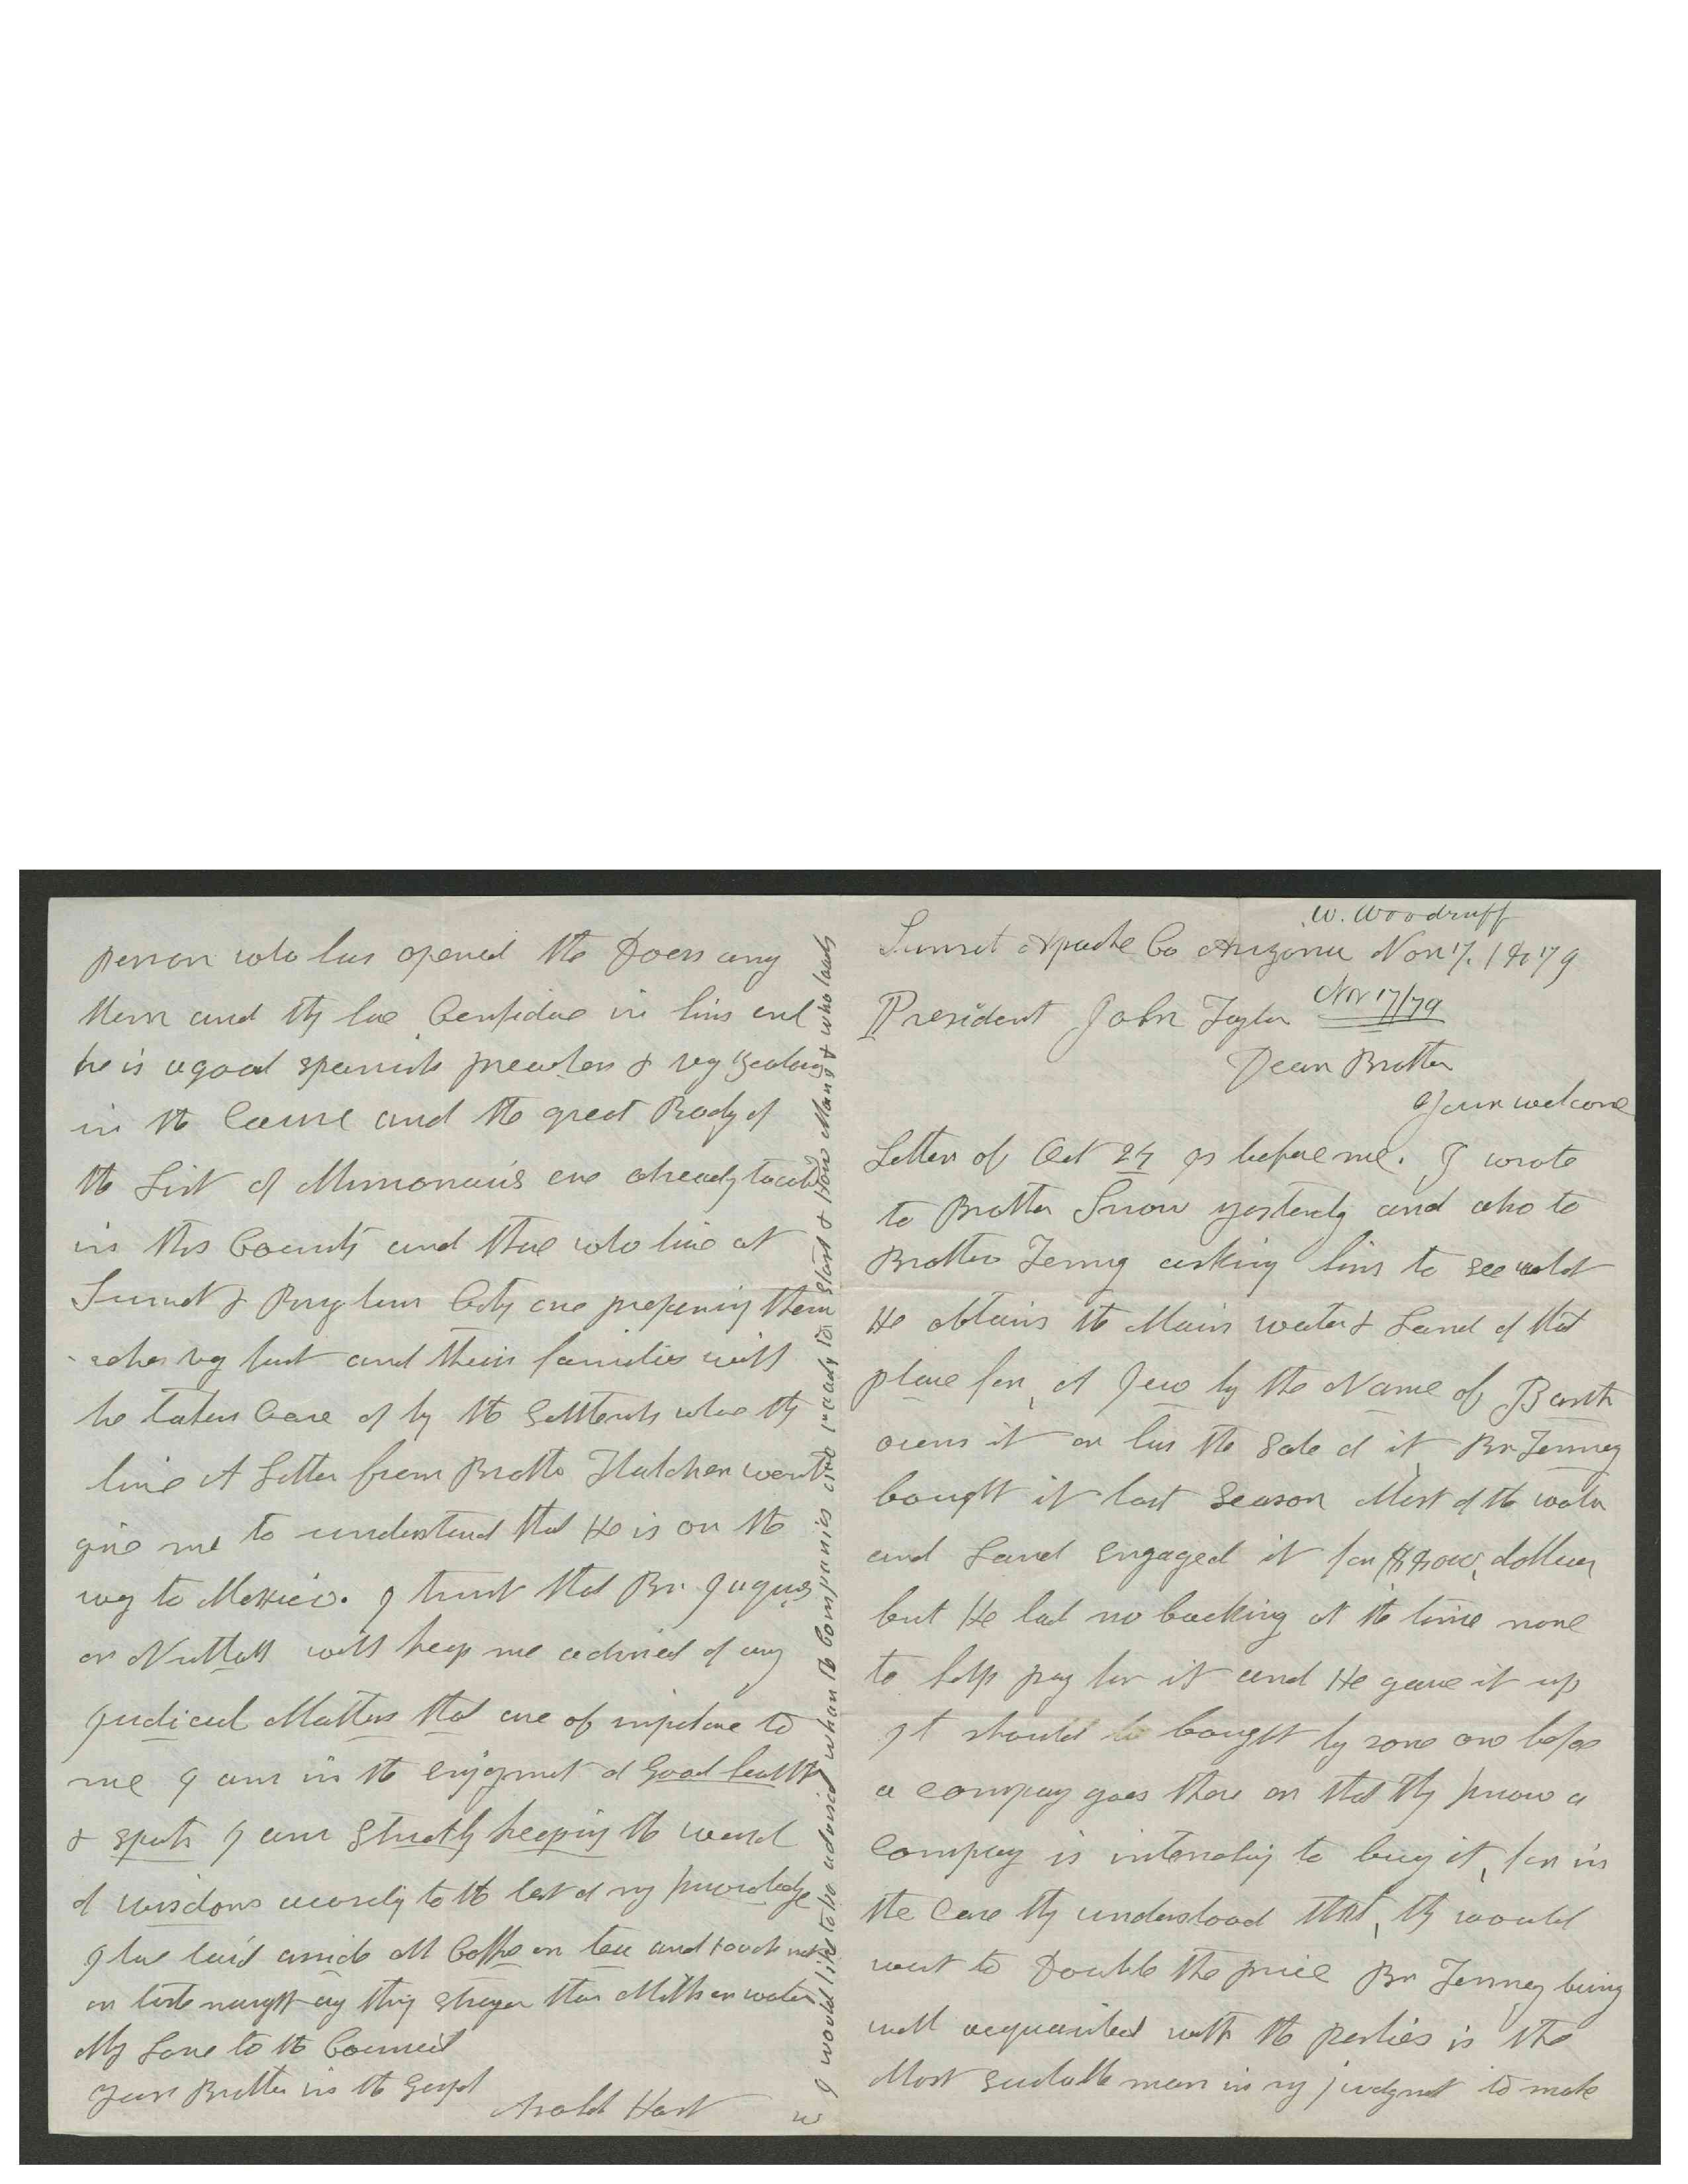 W. Woodruff
Sunset Apache Co Arizona Nov 17. 1879
President John Taylor Nov 17/79
Dear Brother
Your welcome
Letter of Oct 24 is before me. I wrote
to Brother Snow yesterdy and also to
Brother Tenny asking him to see what
He obtains the Main water & Land of that
place for, A Jew by the Name of Barth
owens it or has the Sale of it, Br Tenney
bought it last Season Most of the water
and Land engaged it for dollars
but He had no backing at the time none
to help pay for it and He gave it up
It should be bought by some one before
a compay goes there or that thy know a
Compay is intending to buy it, for in
the Case thy understood that, thy would
want to Double the price Br Tenney being
well acquainted with the parties is the
Most suitable man in my judgmet to make
person who has opened the Doers amg
them and thy have Confidae in him and
he is a good spanish preacher & vey Zealous
in the Cause and the great Body of
the List of are already located
in this County and those who live at
Sunset & Brigham City are prepering them
selves vey fast and their families will
be taken Care of by the Settlemts whare thy
live A Letter from Brothr Thatcher went
give me to understand that He is on the
way to Mexico. I trust that Br Jaques
or Nuttall will keep me advised of any
Judicial Matters that are of impotance to
me I am in the enjoymet of Good health
& spirts I am Strictly keeping the word
of wisdom acordig to the best of my knowledge
I have laid aside all Coffee or tea and touch not
or taste naught any thig stronger than Milk or water
My Love to the Council
Your Brother in the Gospel
Arold Hart
W I would like to be advised whan th Companies are ready to Start & How Many & who leads